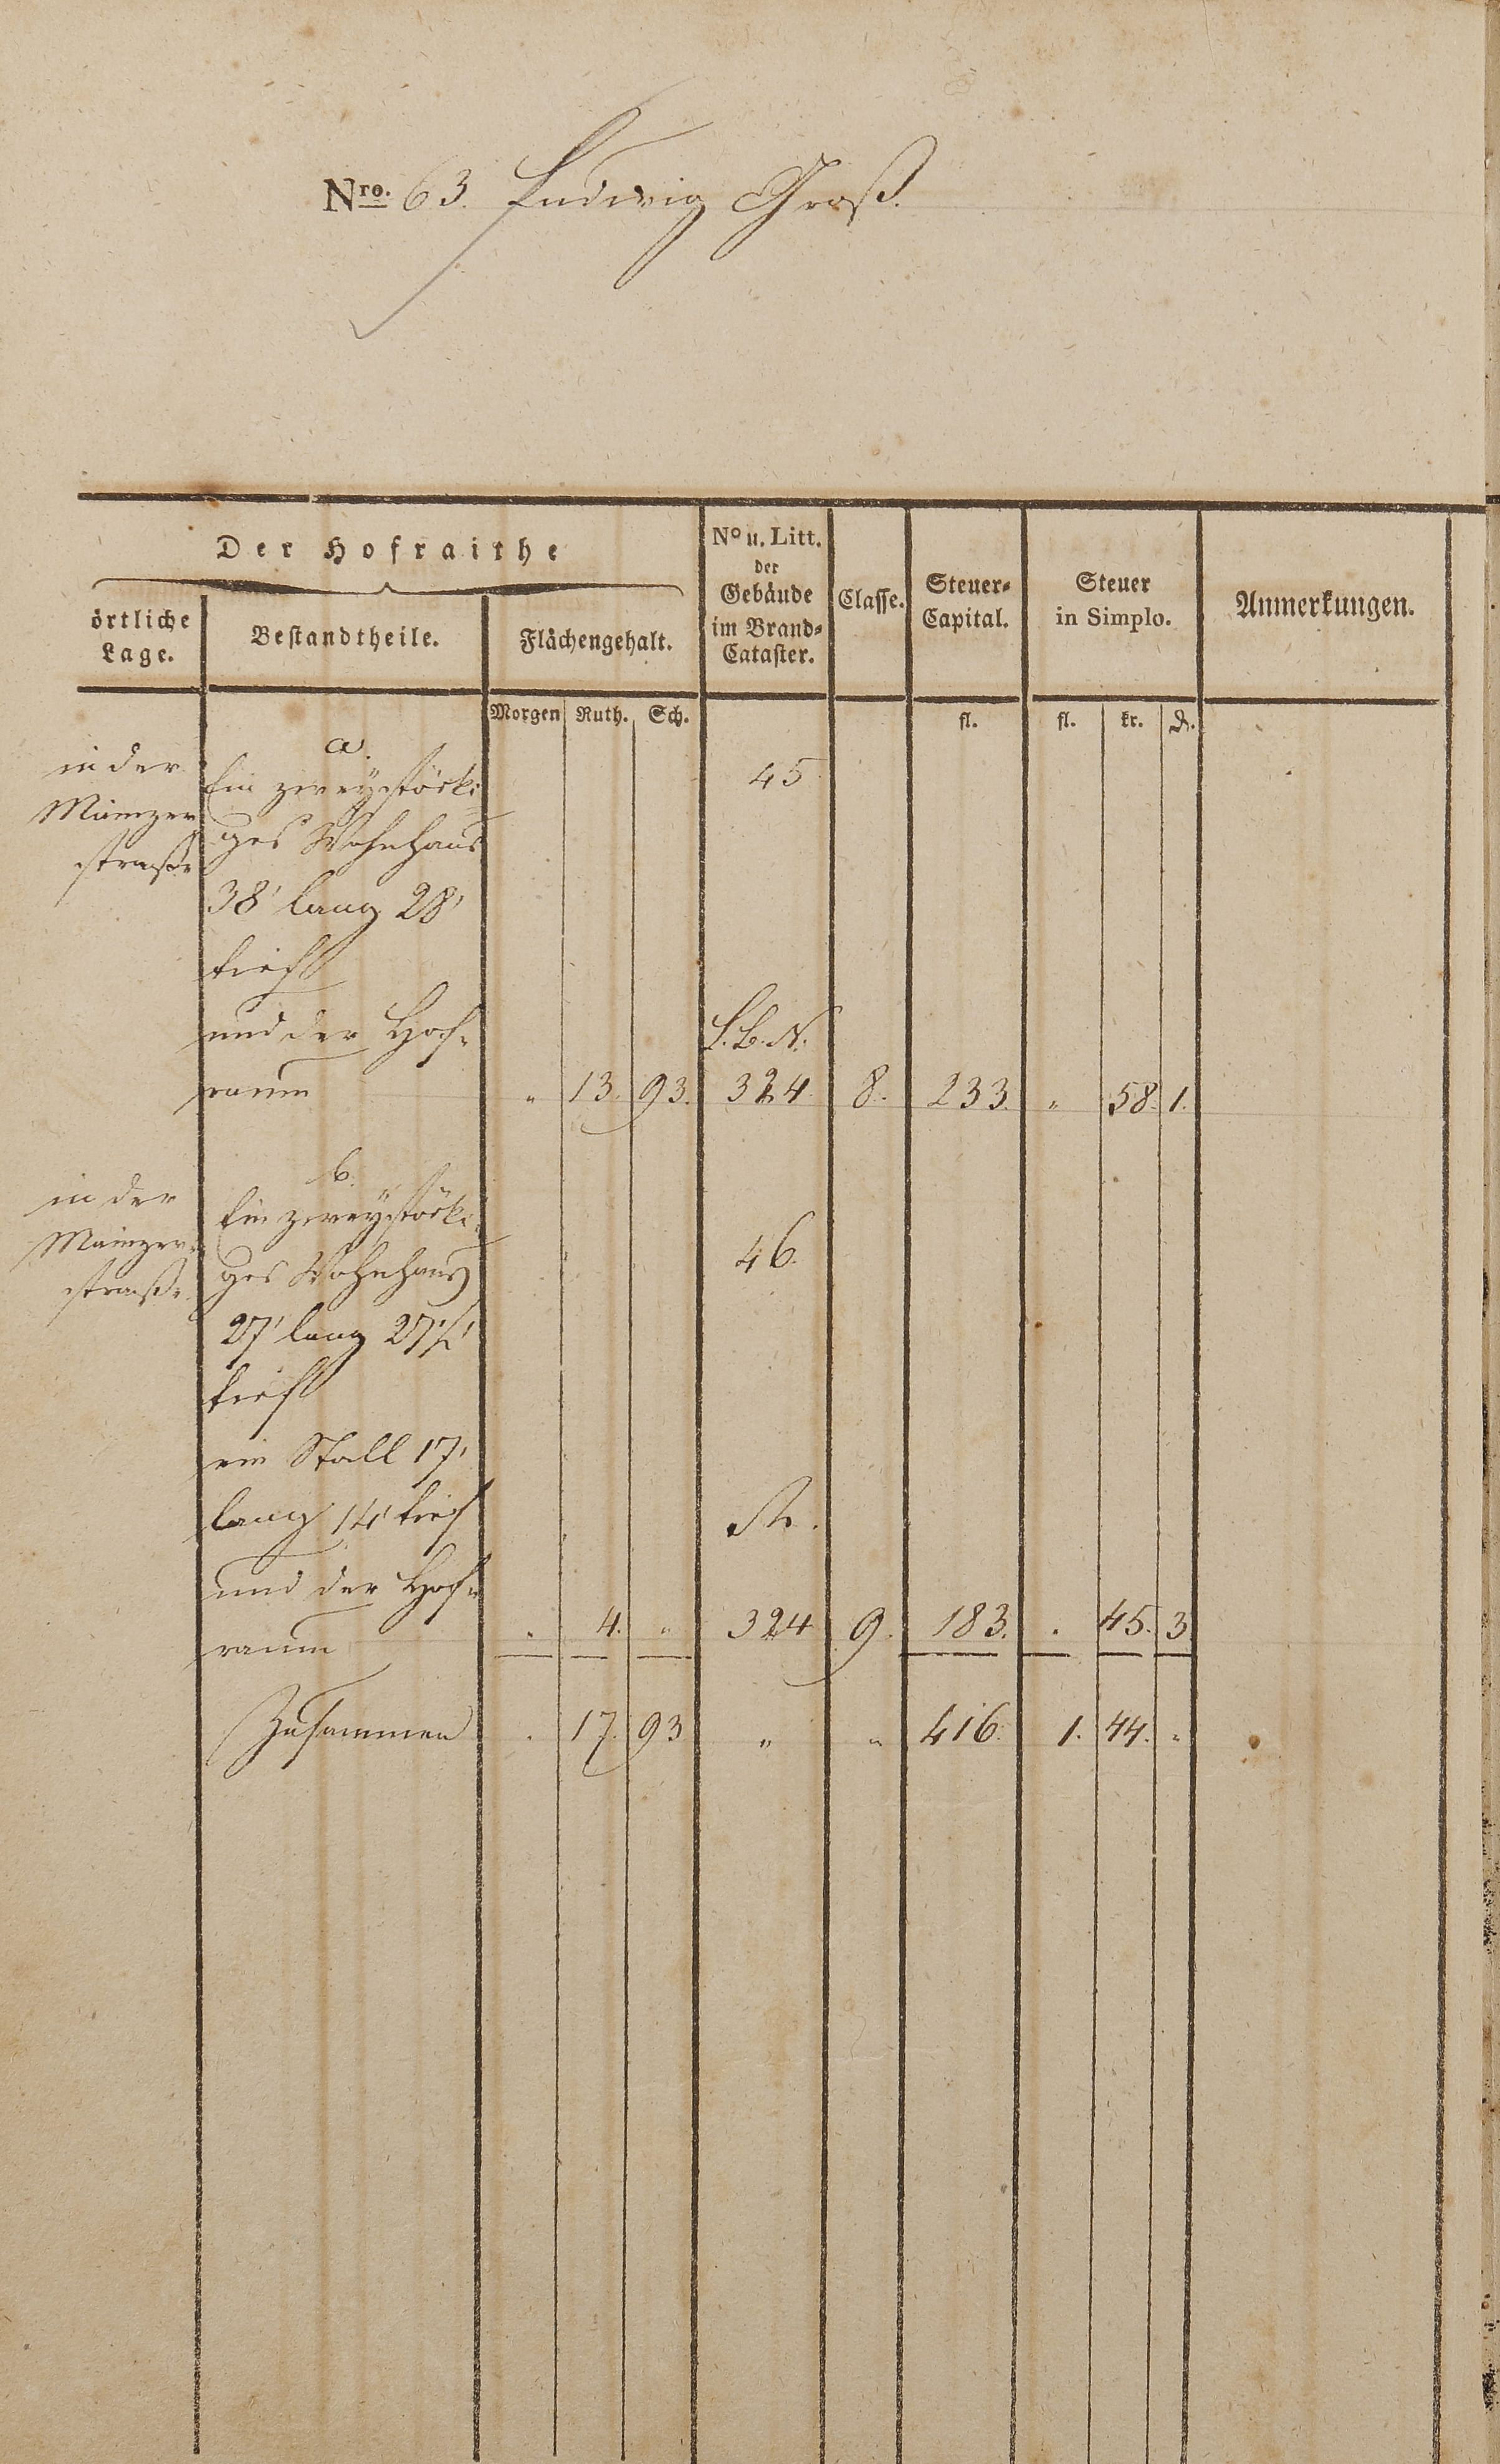 Nro. 63. Ludwig Groß.
Der Hofraithe
örtliche
Lage.
Bestandtheile.
Flächengehalt.
No u. Litt.
der
Gebäude
im Brand-
Cataster.
Classe.
Steuer-
Capital.
Steuer
in Simplo.
Anmerkungen.
Morgen Ruth. Sch. fl. fl. kr. d.
in der
Mainzer
straße
a.
Ein zweystöcki-
ges Wohnhaus 45
38' lang 28'
tief
und der Hof- S. B. N.
raum " 13. 93. 324 8. 233. " 58. 1.
in der
Mainzer-
straße
b.
Ein zweystöcki-
ges Wohnhaus 46.
27' lang 27½'
tief
ein Stall 17'
lang 14' tief St.
und der Hof-
raum " 4. " 324 9. 183. " 45. 3
Zusammen " 17. 93 " " 416. 1. 44. "